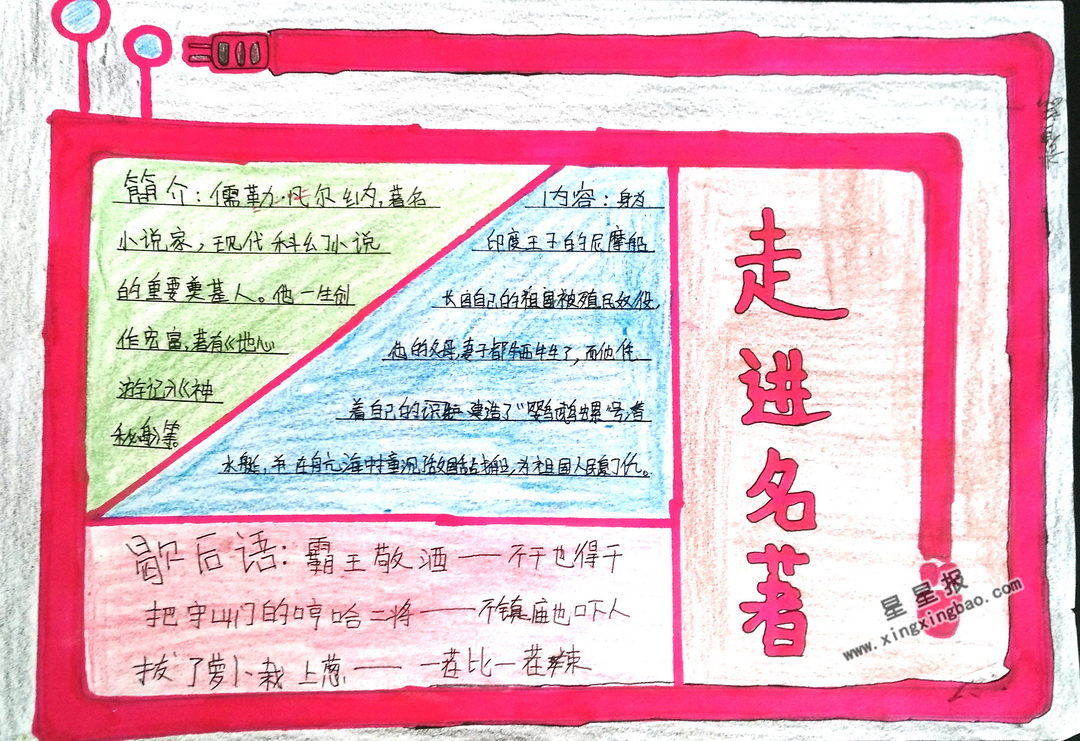 简介：儒勒·凡尔纳，著名
小说家，现代科幻小说
的重要奠基人。他一生创
作宏富，著有《地心
游记》《神
秘岛》等。
内容：身为
印度王子的尼摩船
长因自己的祖国被殖民奴役，
他的父母，妻子都牺牲了，而他凭
着自己的识 建造了“鹦鹉螺”号潜
水艇，并在自 海 沉 敌国 船，为祖国人民复仇。
歇后语：霸王敬酒——不干也得干
把守山门的哼哈二将——不镇庙也吓人
拔了萝卜栽上葱——一茬比一茬辣
走进名著
星星报
www.xingxingbao.com